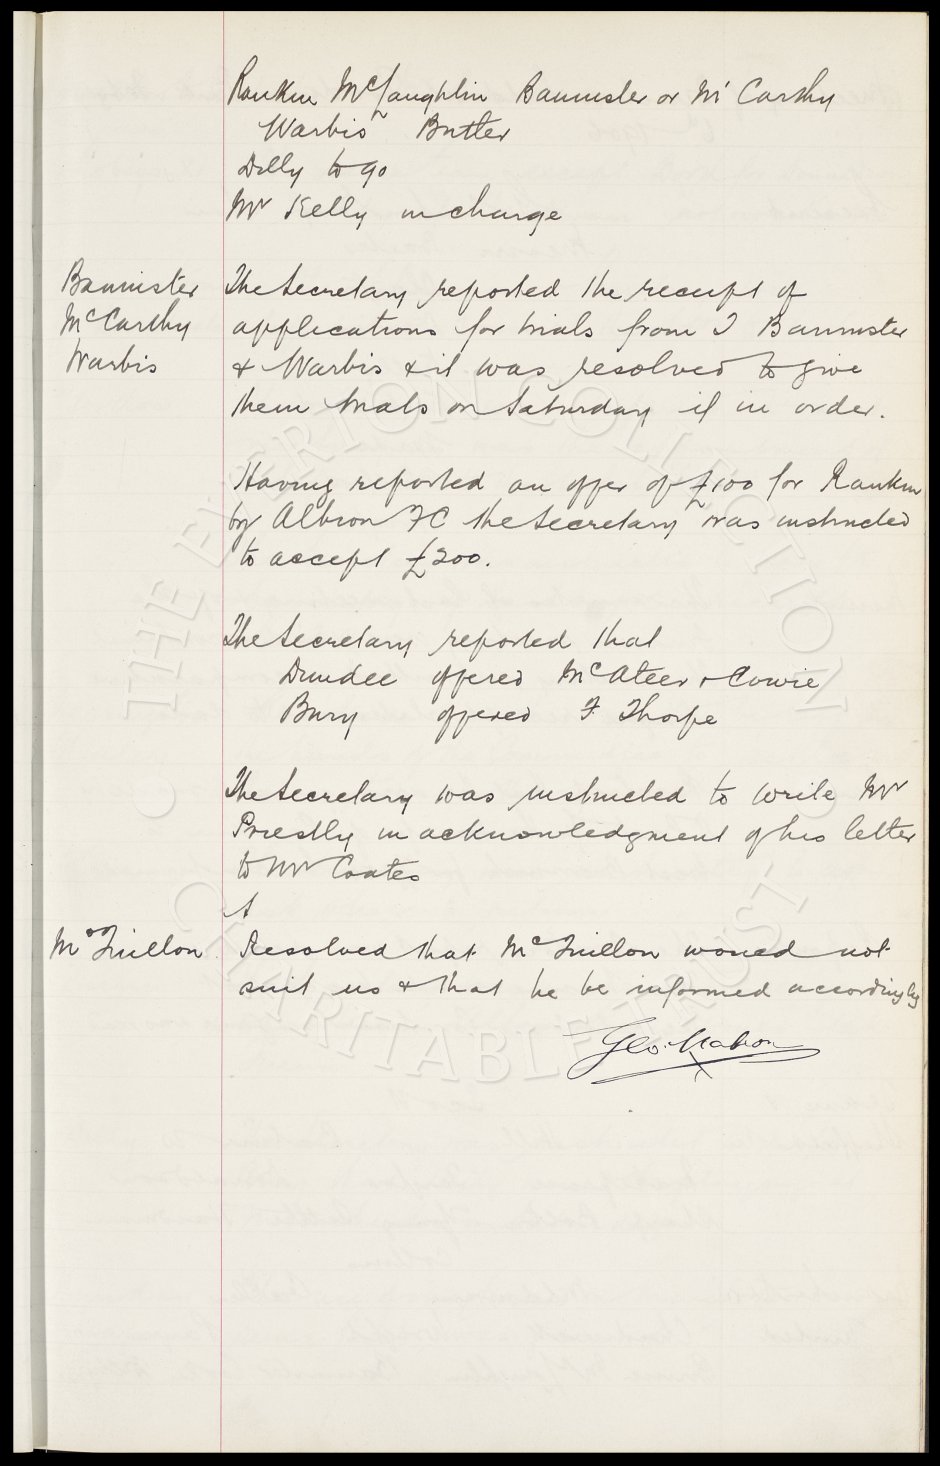 Rankin McLaughlin Bannister or McCarthy
Warbis Butler
Dilly to go
Mr Kelly in charge
Bannister
McCarthy
Warbis
The Secretary reported the receipt of
applications for trials from J Bannister
& Warbis & it was resolved to give
them trials on Saturday if in order.
Having reported an offer of £100 for Rankin
by Albion FC the Secretary was instructed
to accept £200.
The Secretary reported that
Dundee offered McAteer & Cowie
Bury offered F Thorpe
The Secretary was instructed to write Mr
Priestly in acknowledgment of his letter
to Mr Coates
McQuillon
Resolved that McQuillon would not
suit us & that he be informed accordingly
Geo. Mahon
THE EVERTON COLLECTION
CHARITABLE TRUST